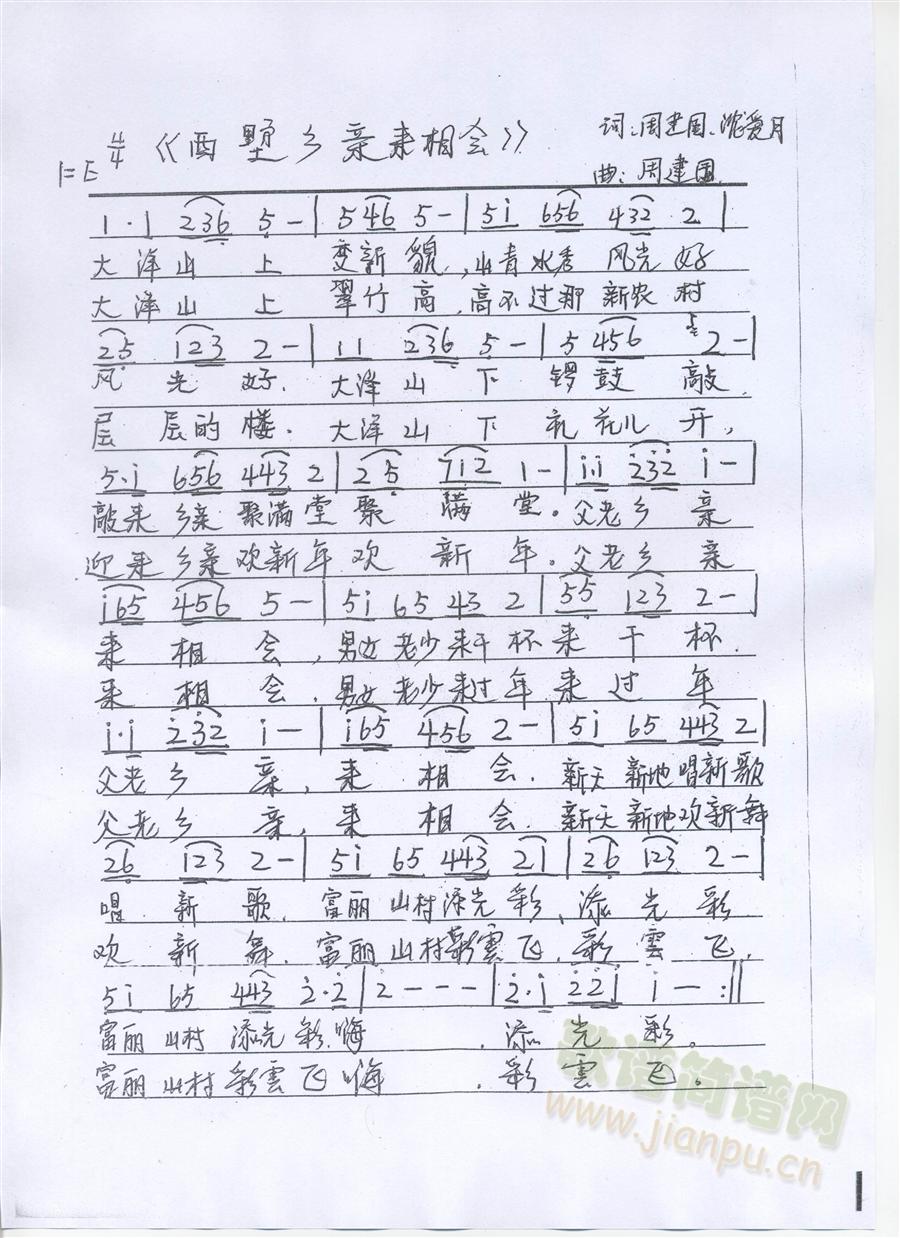 1=E 4/4 《西墅乡亲来相会》 词:周建国、沈爱月
曲:周建国
1·1 236 5 - | 5 46 5 - | 5i 656 432 2 |
大泽山上 变新貌,山青水秀 风光好
大泽山上 翠竹高,高不过那 新农村
25 123 2 - | 11 236 5 - | 5 456 2 - |
风光好. 大泽山下 锣鼓敲.
层层的楼. 大泽山下 礼花儿开,
5·i 656 443 2 | 25 712 1 - | i·i 232 i - |
敲来乡亲聚满堂聚满堂。父老乡亲
迎来乡亲欢新年欢新年。父老乡亲
i65 456 5 - | 5i 65 43 2 | 55 123 2 - |
来相会,男女老少来干杯来干杯.
来相会.男女老少来过年来过年
i·i 232 i - | i65 456 2 - | 5i 65 443 2 |
父老乡亲,来相会.新天新地唱新歌
父老乡亲,来相会.新天新地欢新舞
26 123 2 - | 5i 65 443 21 | 26 123 2 - |
唱新歌.富丽山村添光彩、添光彩
欢新舞.富丽山村彩雲飞.彩雲飞,
5i 65 443 2·2 | 2 - - - | 2·i 221 i - :||
富丽山村添光彩.嗨.添光彩。
富丽山村彩雲飞嗨.彩雲飞.
歌谱简谱网
www.jianpu.cn